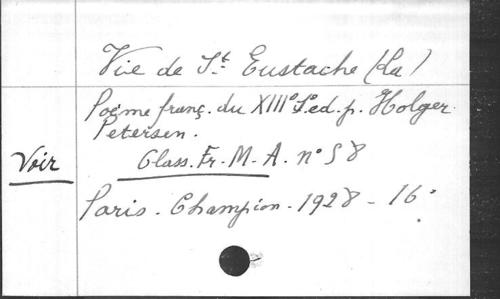 Vie de St. Eustache (La)
Poème franç. du XIII° S. ed. p. Holger
Petersen.
Voir Class. Fr. M. A. n° 58
Paris. Champion. 1928 - 16°